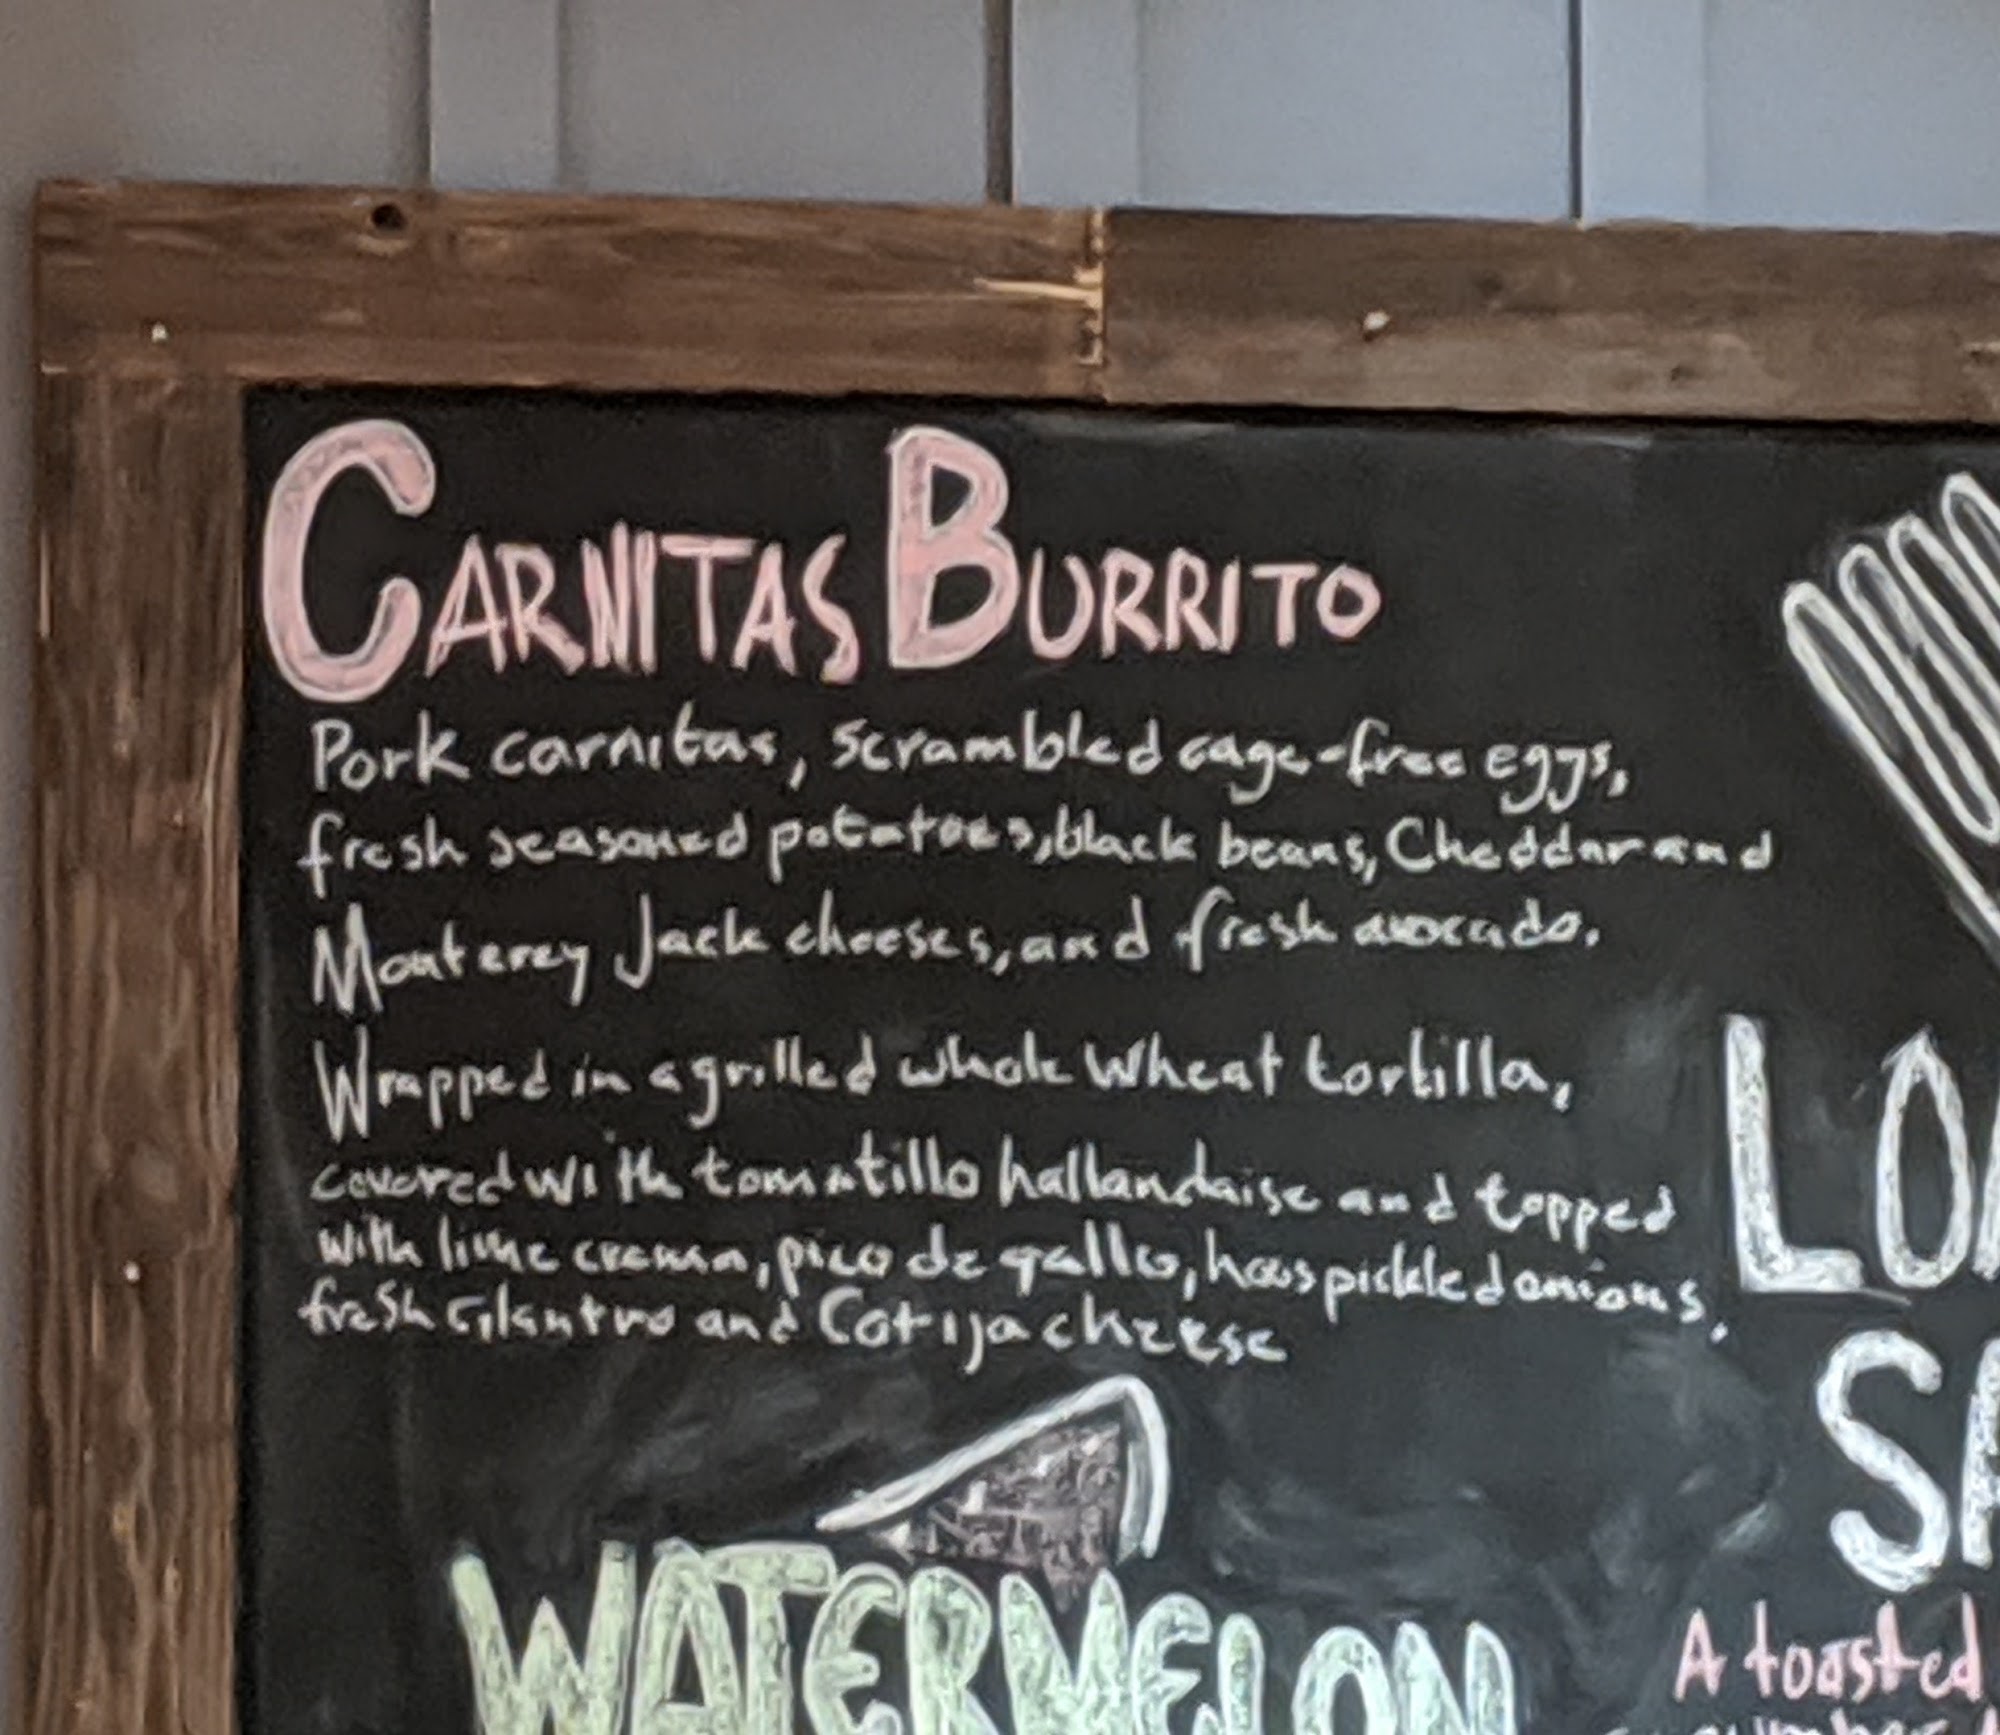 CARNITAS BURRITO
Pork carnitas, scrambled cage-free eggs,
fresh seasoned potatoes, black beans, Cheddar and
Monterey Jack cheeses, and fresh avocado.
Wrapped in a grilled whole wheat tortilla,
covered with tomatillo hallandaise and topped
with lime crema, pico de gallo, haus pickled onions,
fresh cilantro and Cotija cheese
LOA
SA
WATERMELON
A toasted